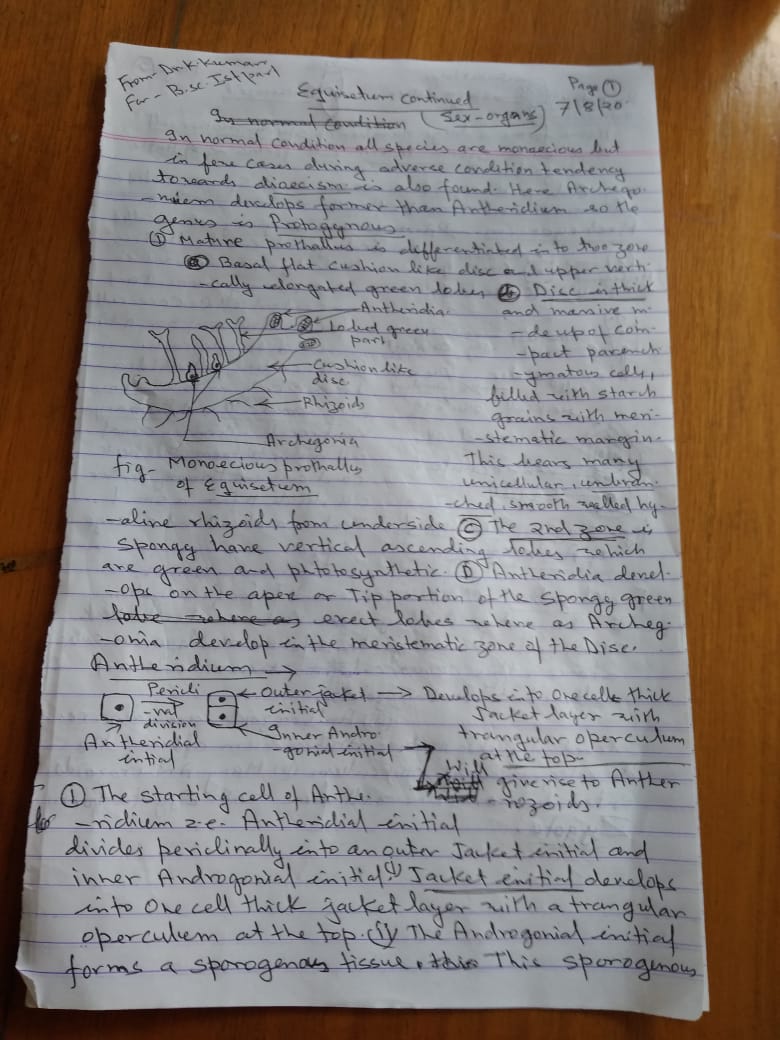 From- Dr.K.Kumar
For - B.Sc. Ist part
Page ①
7/8/20
Equisetum continued
In normal condition (Sex-organs)
In normal condition all species are monaecious but
in few cases during adverse condition tendency
towards diaecism is also found. Here Archego
-nium develops former than Antheridium so the
genus is Protogynous
① Mature prothallus is differentiated into two zone
ⓐ Basal flat cushion like disc and upper verti
-cally elongated green lobes ⓑ Disc is thick
and massive m
-de up of com
-pact parench
-ymatous cells,
filled with starch
grains with meri
-stematic margin.
This bears many
unicellular, unbran
-ched, smooth walled hy-
Antheridia
Lobed green
part
Cushion like
disc
Rhizoids
Archegonia
fig- Monoecious prothallus
of Equisetum
-aline rhizoids from underside ⓒ The 2nd zone is
spongy have vertical ascending lobes which
are green and phtotosynthetic. Ⓓ Antheridia devel-
-ops on the apex or Tip portion of the spongy green
lobe where as erect lobes where as Archeg-
-onia develop in the meristematic zone of the Disc.
Antheridium →
Pericli
-nal
division
Antheridial
intial
← Outer jacket
initial
Inner Andro
-gonial initial
→ Develops into one cell thick
Jacket layer with
trangular operculum
at the top
Will
give rise to Anther
-rozoids.
① The starting cell of Anthe-
-ridium i.e. Antheridial initial
divides periclinally into an outer Jacket initial and
inner Androgonial initial. (i) Jacket initial develops
into one cell thick jacket layer with a trangular
operculum at the top. (ii) The Androgonial initial
forms a sporogenous tissue, this This sporogenous